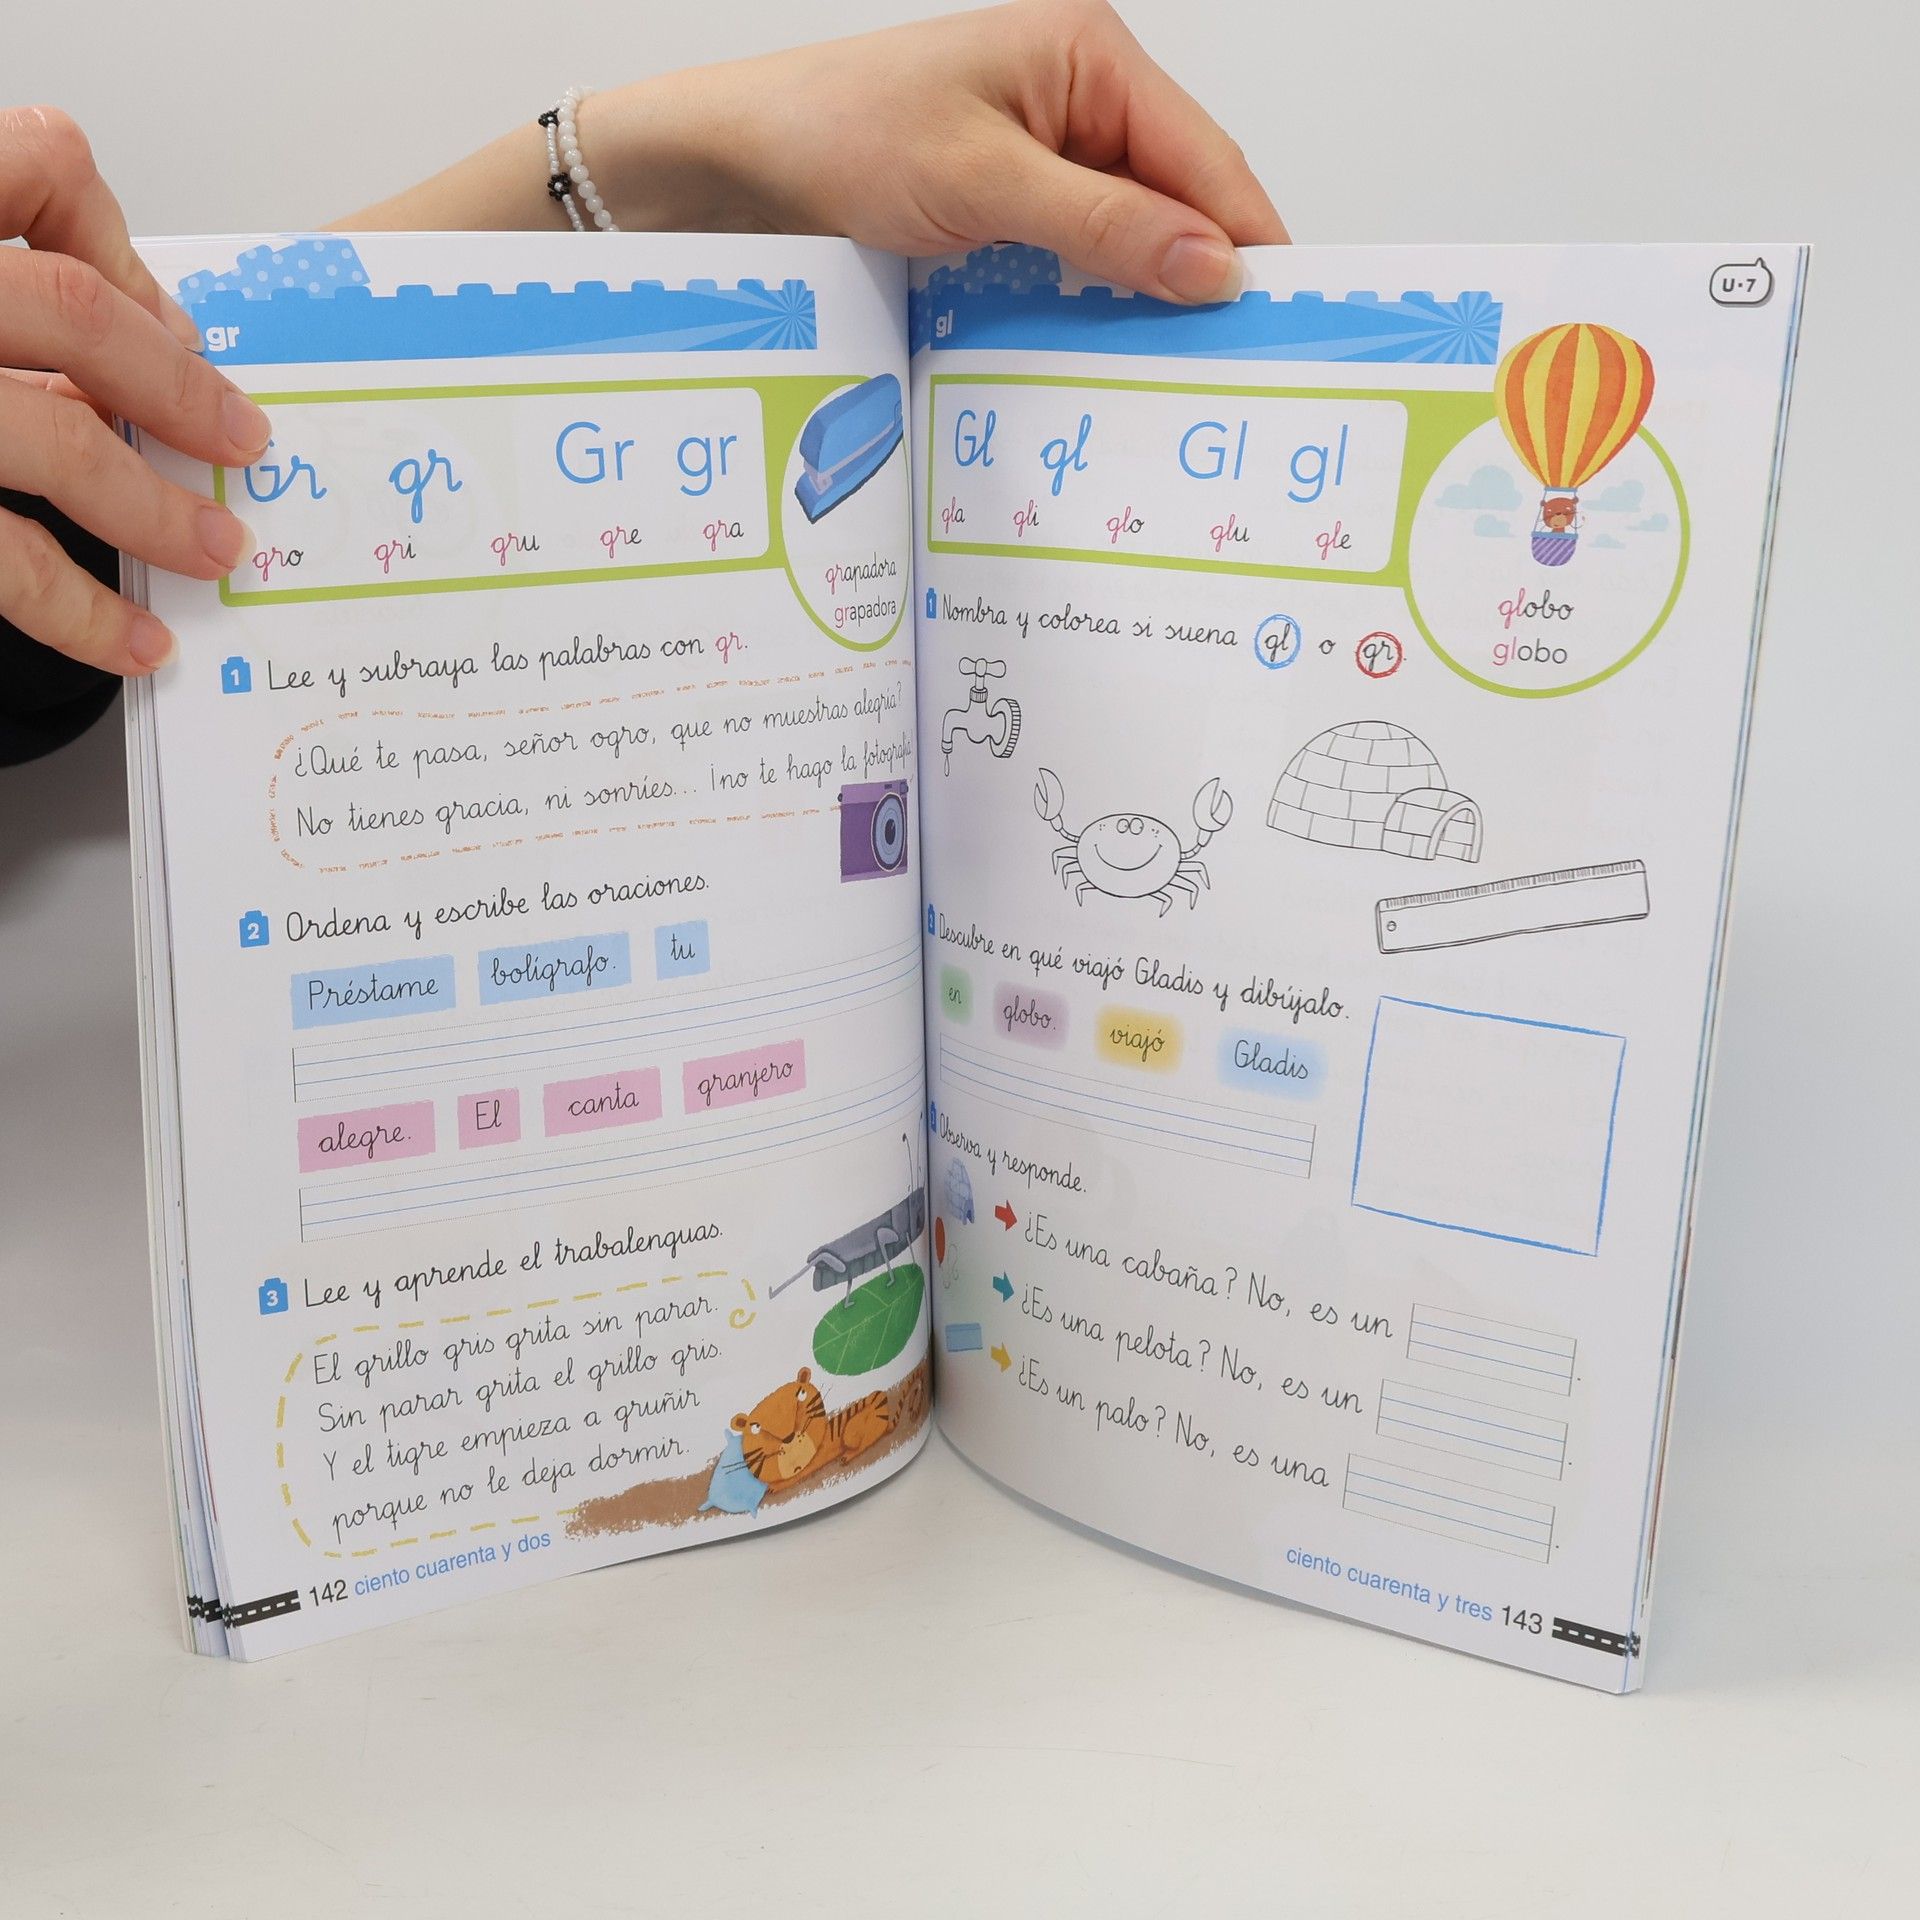 gr
Gr gr Gr gr
gro gri gru gre gra
grapadora
grapadora
1 Lee y subraya las palabras con gr.
¿Qué te pasa, señor ogro, que no muestras alegría?
No tienes gracia, ni sonríes... ¡no te hago la fotografía
2 Ordena y escribe las oraciones.
Préstame bolígrafo. tu
alegre. El canta granjero
3 Lee y aprende el trabalenguas.
El grillo gris grita sin parar.
Sin parar grita el grillo gris.
Y el tigre empieza a gruñir
porque no le deja dormir.
142 ciento cuarenta y dos
U·7
gl
Gl gl Gl gl
gla gli glo glu gle
globo
globo
1 Nombra y colorea si suena gl o gr.
2 Descubre en qué viajó Gladis y dibújalo.
en globo. viajó Gladis
3 Observa y responde.
¿Es una cabaña? No, es un .
¿Es una pelota? No, es un .
¿Es un palo? No, es una .
ciento cuarenta y tres 143